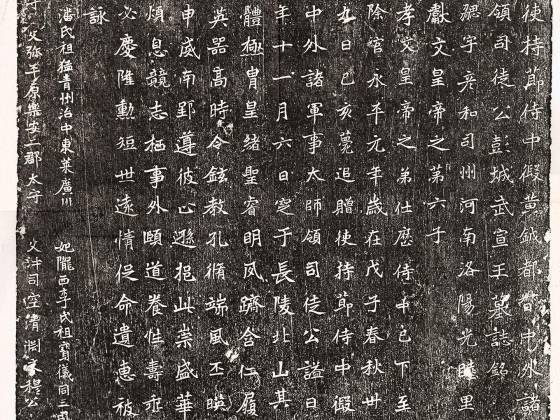 使持節侍中假黃鉞都督中外諸
領司徒公彭城武宣王墓誌銘
勰字彥和司州河南洛陽光睦里
獻文皇帝之第六子
孝文皇帝之弟仕歷侍中已下至
除官永平元年歲在戊子春秋卅
九日己亥薨追贈使持節侍中假
中外諸軍事太師領司徒公謚曰
年十一月六日窆于長陵北山其
體極胄皇緒聖睿明夙躋含仁履
英器高時令鉉教孔脩端風丕映
申威南郢遵彼止遜挹此崇盛華
煩息競志栖事外頤道養性壽乖
必慶隆勳短世遠情促命遺惠被
詠
妃隴西李氏祖寶儀同三司
潘氏祖猛青州治中東萊廣川
父沖司空清淵文穆公
父彌平原樂安二郡太守